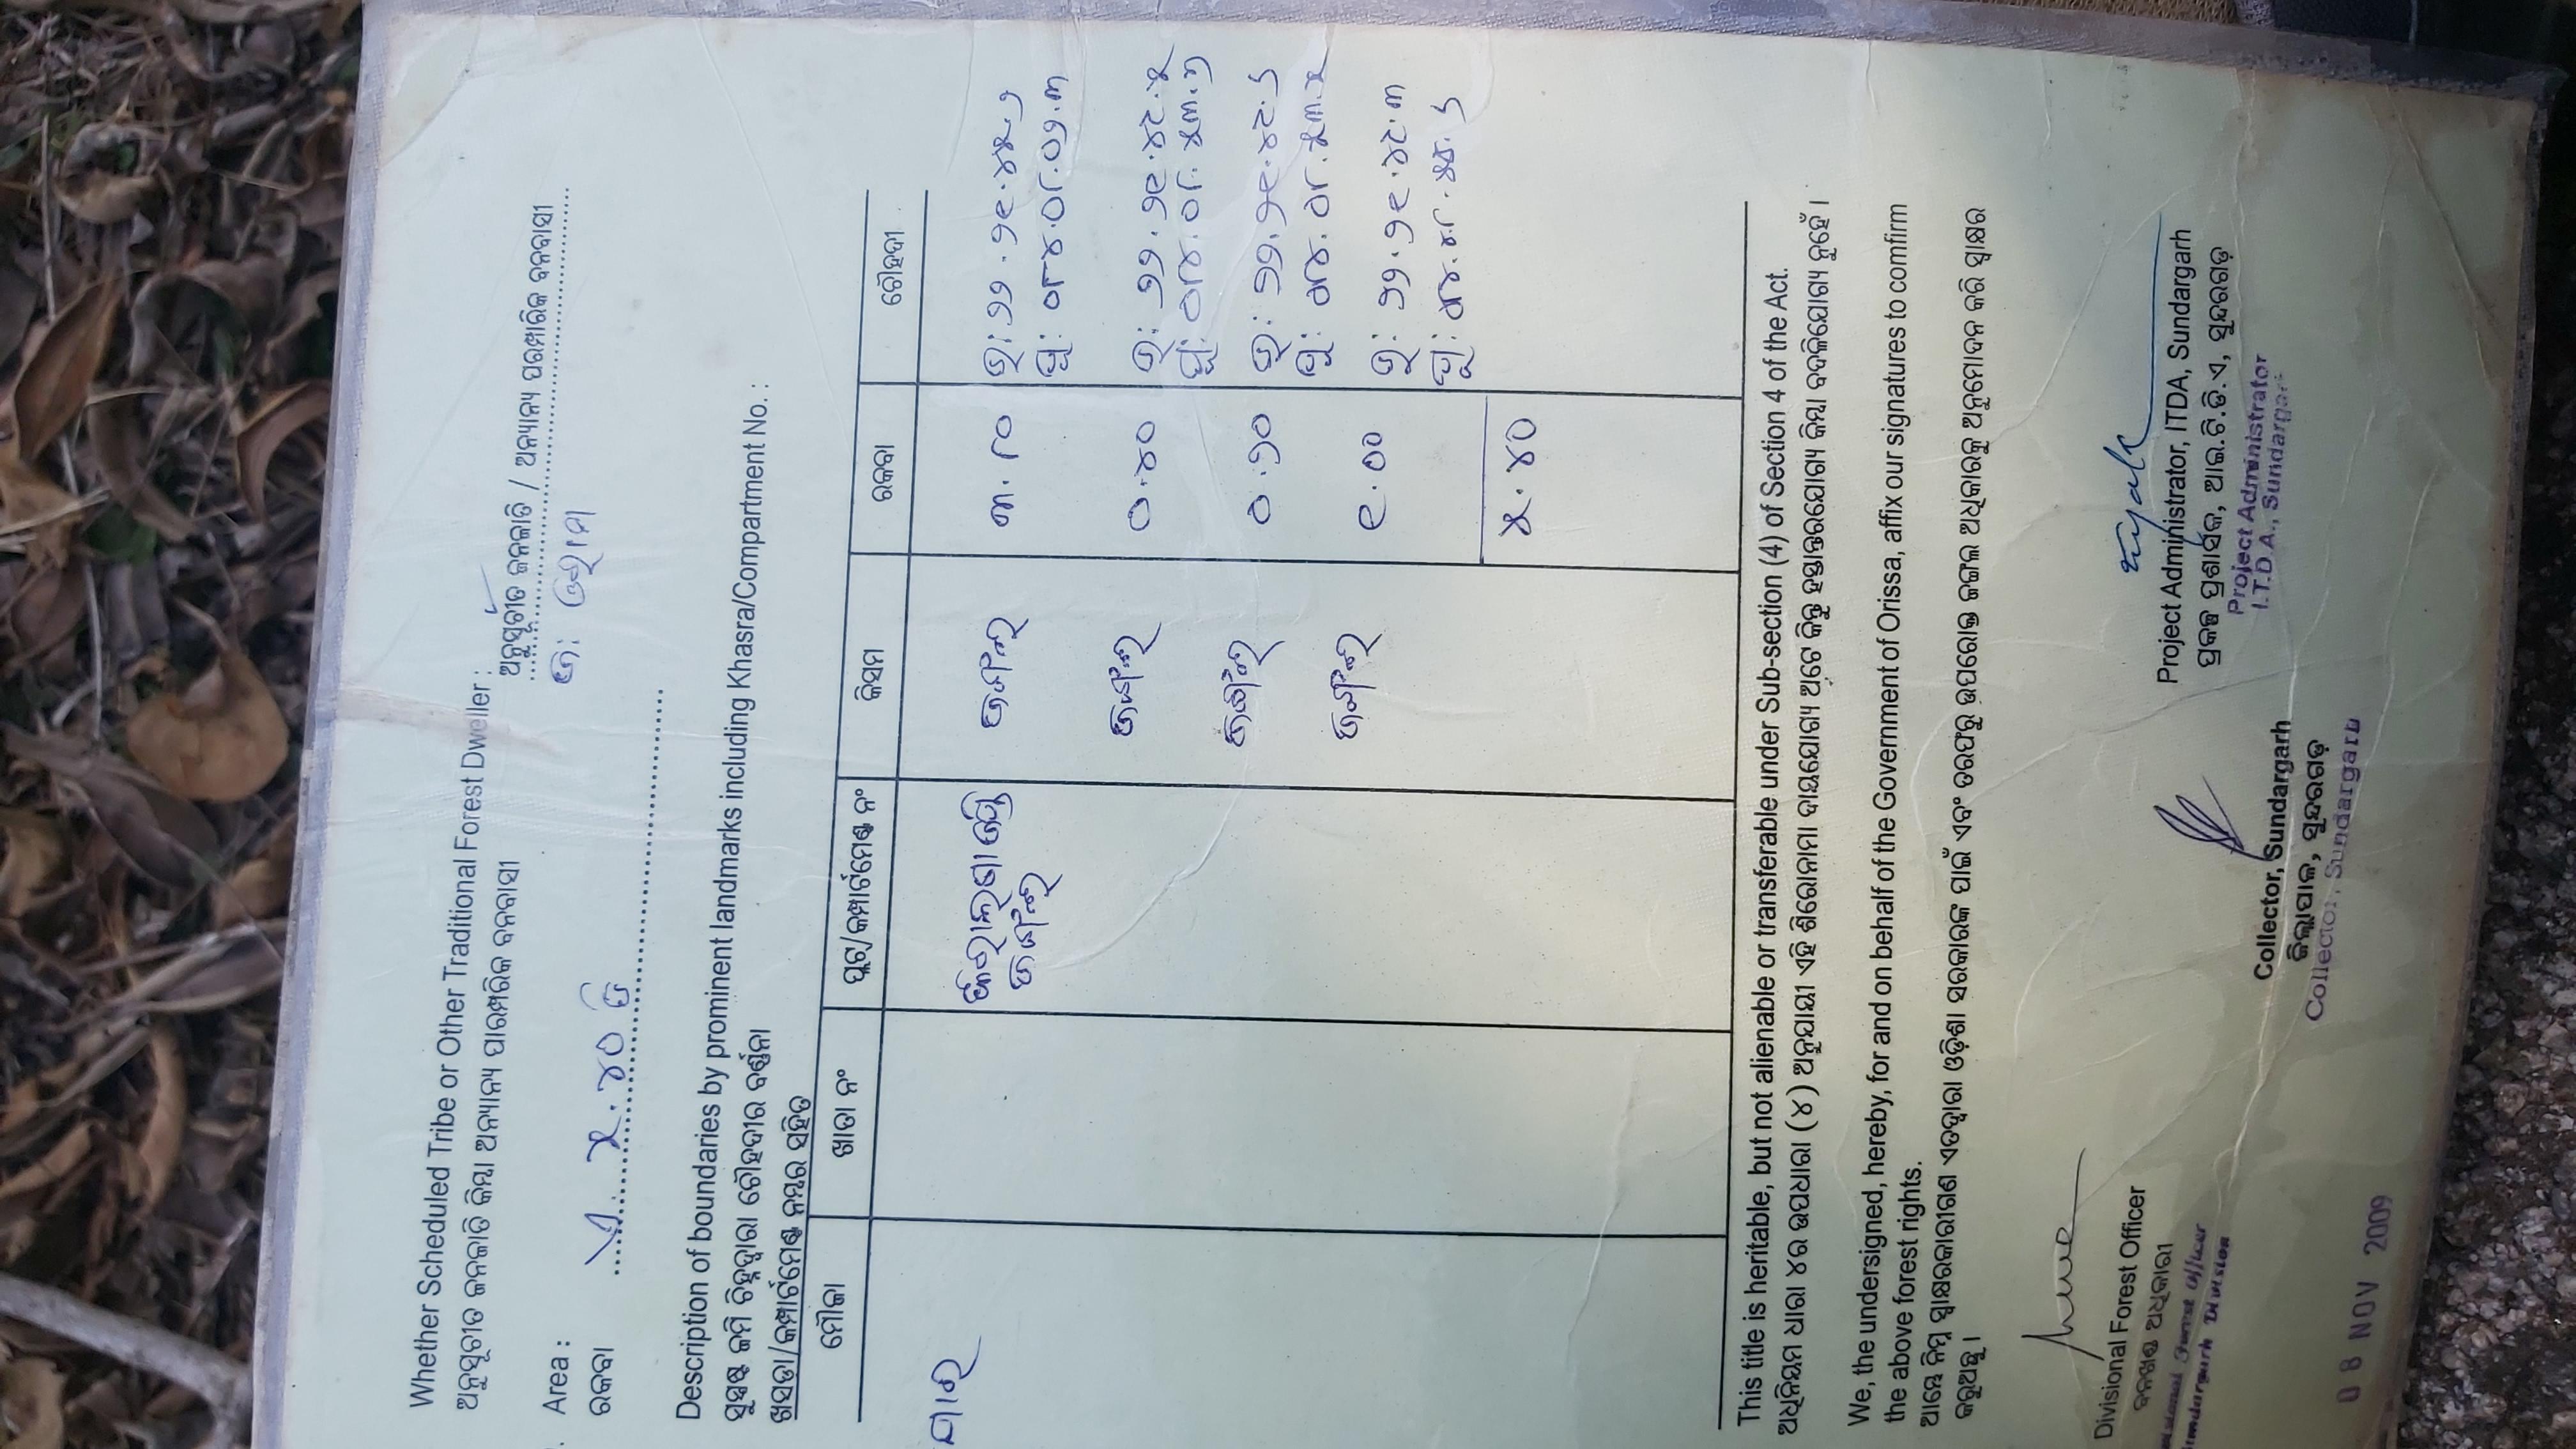 Whether Scheduled Tribe or Other Traditional Forest Dweller :
ଅନୁସୂଚୀତ ଜନଜାତି କିମ୍ବା ଅନ୍ୟାନ୍ୟ ପାରମ୍ପରିକ ବନବାସୀ
ଅନୁସୂଚୀତ ଜନଜାତି / ଅନ୍ୟାନ୍ୟ ପରମ୍ପାରିକ ବନବାସୀ
Area :
ରକବା
୫.୪୦ ଡି
Description of boundaries by prominent landmarks including Khasra/Compartment No. :
ସୁସ୍ପଷ୍ଟ ଜମି ଚିହ୍ନଦ୍ୱାରା ଚୌହଦୀର ବର୍ଣ୍ଣନା
ଖସଡ଼ା/କମ୍ପାର୍ଟମେଣ୍ଟ ନମ୍ବର ସହିତ
ମୌଜା ଖାତା ନଂ ପ୍ଲଟ୍/କମ୍ପାର୍ଟମେଣ୍ଟ ନଂ କିସମ ରକବା ଚୌହଦୀ
ଜଙ୍ଗଲ ୩.୮୦ ଉ: ୨୨.୨୧.୪୫.୨
ଜଙ୍ଗଲ ପୂ: ୦୮୪.୦୮.୦୨.୩
ଜଙ୍ଗଲ ୦.୪୦ ଉ: ୨୨.୨୧.୪୯.୫
ପୂ: ୦୮୪.୦୮.୫୩.୨
ଜଙ୍ଗଲ ୦.୨୦ ଉ: ୨୨.୨୧.୪୯.୬
ପୂ: ୦୮୪.୦୮.୫୩.୫
ଜଙ୍ଗଲ ୧.୦୦ ଉ: ୨୨.୨୧.୪୯.୩
୫.୪୦
This title is heritable, but not alienable or transferable under Sub-section (4) of Section 4 of the Act.
ଅଧିନିୟମ ଧାରା ୪ର ଉପଧାରା (୪) ଅନୁଯାୟୀ ଏହି ଶିରୋନାମା ଦାୟଯୋଗ୍ୟ ଅଟେ କିନ୍ତୁ ହସ୍ତାନ୍ତରଯୋଗ୍ୟ କିମ୍ବା ବଦଳିଯୋଗ୍ୟ ନୁହେଁ ।
We, the undersigned, hereby, for and on behalf of the Government of Orissa, affix our signatures to comfirm
the above forest rights.
ଆମ୍ଭେ ନିମ୍ନ ସ୍ୱାକ୍ଷରକାରୀଗଣ ଏତଦ୍ୱାରା ଓଡ଼ିଶା ସରକାରଙ୍କ ପାଇଁ ଏବଂ ତରଫରୁ ଉପରୋକ୍ତ ଜଙ୍ଗଲ ଅଧିକାରକୁ ଅନୁମୋଦନ କରି ସ୍ୱାକ୍ଷର
କରୁଅଛୁ ।
Divisional Forest Officer
ବନଖଣ୍ଡ ଅଧିକାରୀ
Divisional Forest Officer
Sundargarh Division
Collector, Sundargarh
ଜିଲ୍ଲାପାଳ, ସୁନ୍ଦରଗଡ଼
Collector, Sundargarh
Project Administrator, ITDA, Sundargarh
ପ୍ରକଳ୍ପ ପ୍ରଶାସକ, ଆଇ.ଟି.ଡି.ଏ, ସୁନ୍ଦରଗଡ଼
Project Administrator
I.T.D.A., Sundargarh
08 NOV 2009